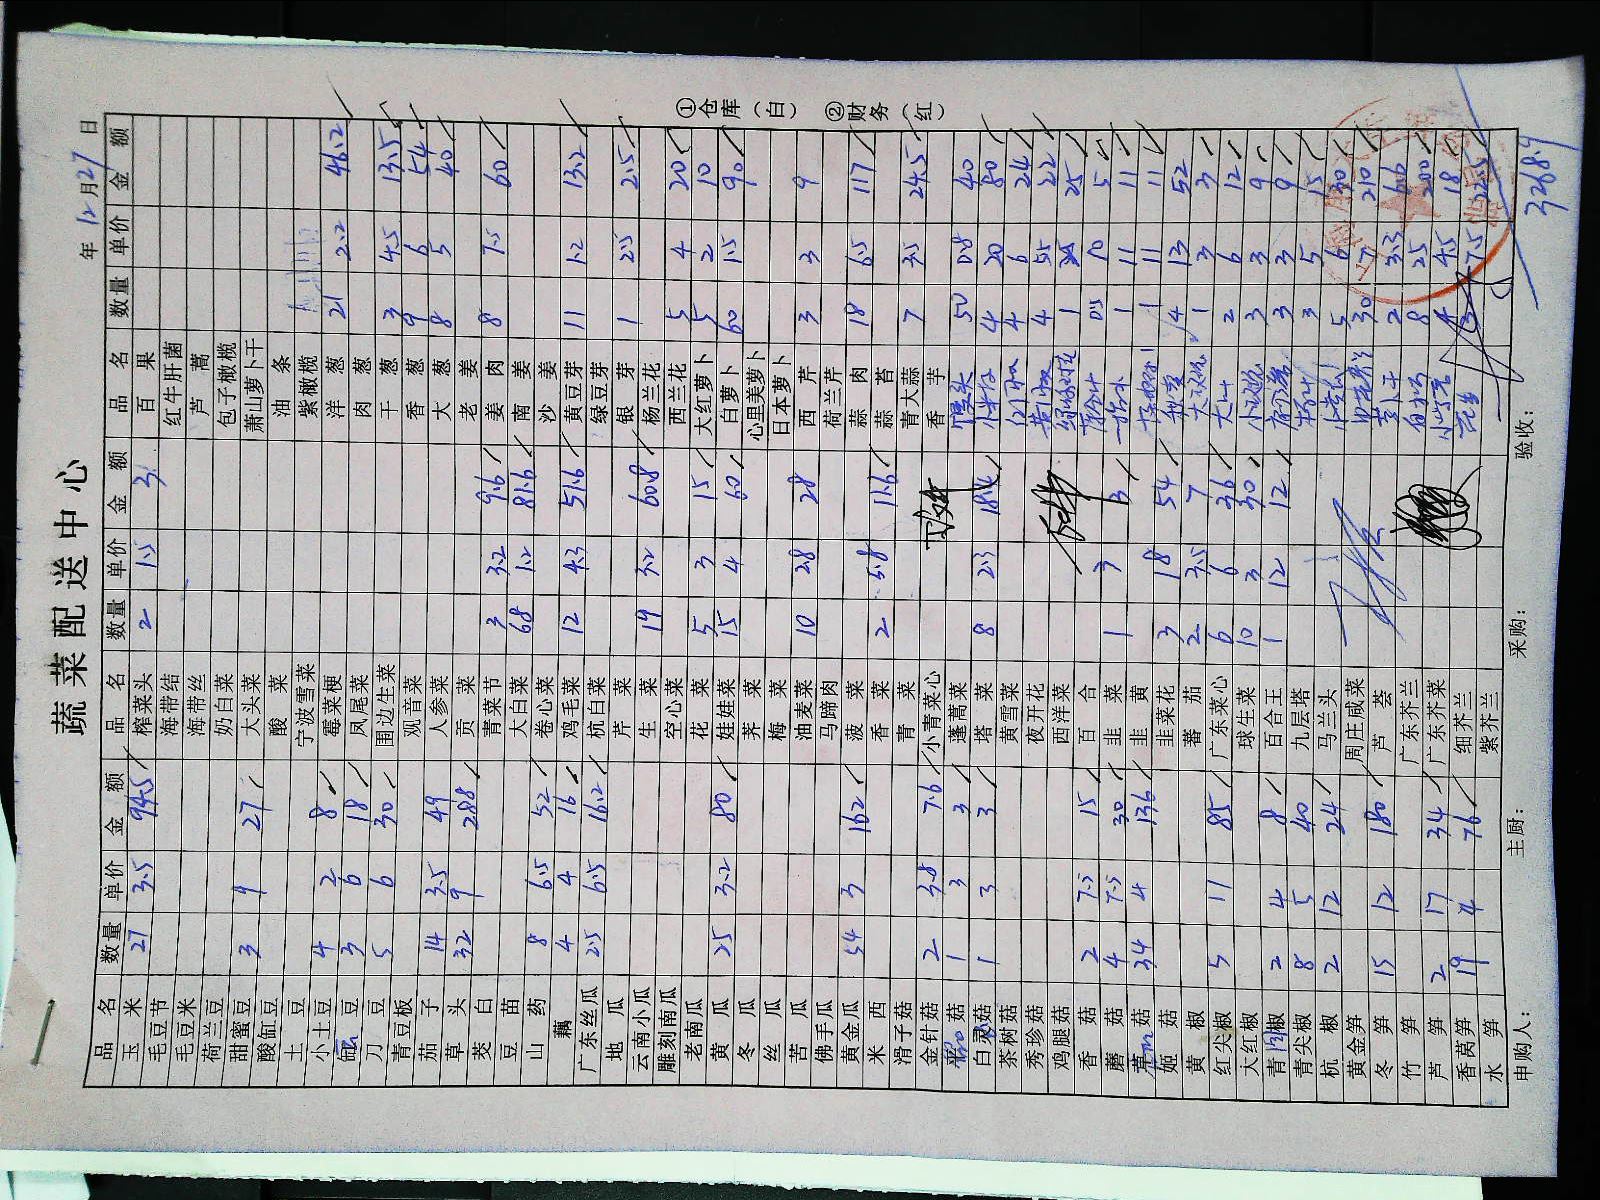 蔬菜配送中心
年 12月27日
品名 数量 单价 金额 品名 数量 单价 金额 品名 数量 单价 金额
玉米 27 3.5 94.5 榨菜头 2 1.5 3 百果
毛豆节 海带结 红牛肝菌
毛豆米 海带丝 芦蒿
荷兰豆 奶白菜 包子橄榄
甜蜜豆 3 9 27 大头菜 萧山萝卜干
酸缸豆 酸菜 油条
土豆 宁波雪菜 紫橄榄
小土豆 4 2 8 霉菜梗 洋葱 21 2.2 46.2
豆 3 6 18 凤尾菜 肉葱
刀豆 5 6 30 围边生菜 干葱 3 4.5 13.5
青豆板 观音菜 香葱 9 6 54
茄子 14 3.5 49 人参菜 大葱 8 5 40
草头 32 9 288 贡菜 老姜
茭白 青菜节 3 3.2 9.6 姜肉 8 7.5 60
豆苗 大白菜 68 1.2 81.6 南姜
山药 8 6.5 52 卷心菜 沙姜
藕 4 4 16 鸡毛菜 12 4.3 51.6 黄豆芽 11 1.2 13.2
广东丝瓜 2.5 6.5 16.2 杭白菜 绿豆芽
地瓜 芹菜 银芽 1 2.5 2.5
云南小瓜 生菜 19 3.2 60.8 杨兰花
雕刻南瓜 空心菜 西兰花 5 4 20
老南瓜 花菜 5 3 15 大红萝卜 5 2 10
黄瓜 25 3.2 80 娃娃菜 15 4 60 白萝卜 60 1.5 90
冬瓜 荠菜 心里美萝卜
丝瓜 梅菜 日本萝卜
苦瓜 油麦菜 10 2.8 28 西芹 3 3 9
佛手瓜 马蹄肉 荷兰芹
黄金瓜 54 3 162 菠菜 蒜肉 18 6.5 117
米西 香菜 2 5.8 11.6 蒜苔
滑子菇 青菜 青大蒜 7 3.5 24.5
金针菇 2 3.8 7.6 小青菜心 香芋
菇 1 3 3 蓬蒿菜 馒头 50 0.8 40
白灵菇 1 3 3 塔菜 8 2.3 18.4 4 20 80
茶树菇 黄雪菜 4 6 24
秀珍菇 夜开花 4 5.5 22
鸡腿菇 西洋菜 1 25
香菇 2 7.5 15 百合 0.5 10 5
蘑菇 4 7.5 30 韭菜 1 3 3 1 11 11
菇 34 4 136 韭黄 1 11 11
姬菇 韭菜花 3 18 54 4 13 52
黄椒 蕃茄 2 3.5 7 1 3 3
红尖椒 5 11 85 广东菜心 6 6 36 2 6 12
大红椒 球生菜 10 3 30 3 3 9
青圆椒 2 4 8 百合王 1 12 12 3 3 9
青尖椒 8 5 40 九层塔 3 5 15
杭椒 2 12 24 马兰头 5 6 30
黄金笋 周庄咸菜 30 7 210
冬笋 15 12 180 芦荟 2 3.3
竹笋 广东芥兰 8 25 200
芦笋 2 17 34 广东芥菜 4 4.5 18
香莴笋 19 4 76 细芥兰 3 7.5 22.5
水笋 紫芥兰
申购人： 主厨： 采购： 验收：
3268.9
①仓库（白） ②财务（红）